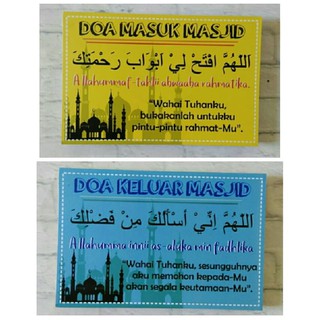 DOA MASUK MASJID
اَللهُمَّ افْتَحْ لِيْ اَبْوَابَ رَحْمَتِكَ
Allahummaf-tahlii abwaaba rahmatika.
"Wahai Tuhanku,
bukakanlah untukku
pintu-pintu rahmat-Mu".
DOA KELUAR MASJID
اَللهُمَّ اِنِّيْ اَسْأَلُكَ مِنْ فَضْلِكَ
Allahumma innii as-aluka min fadhlika
"Wahai Tuhanku, sesungguhnya
aku memohon kepada-Mu
akan segala keutamaan-Mu".